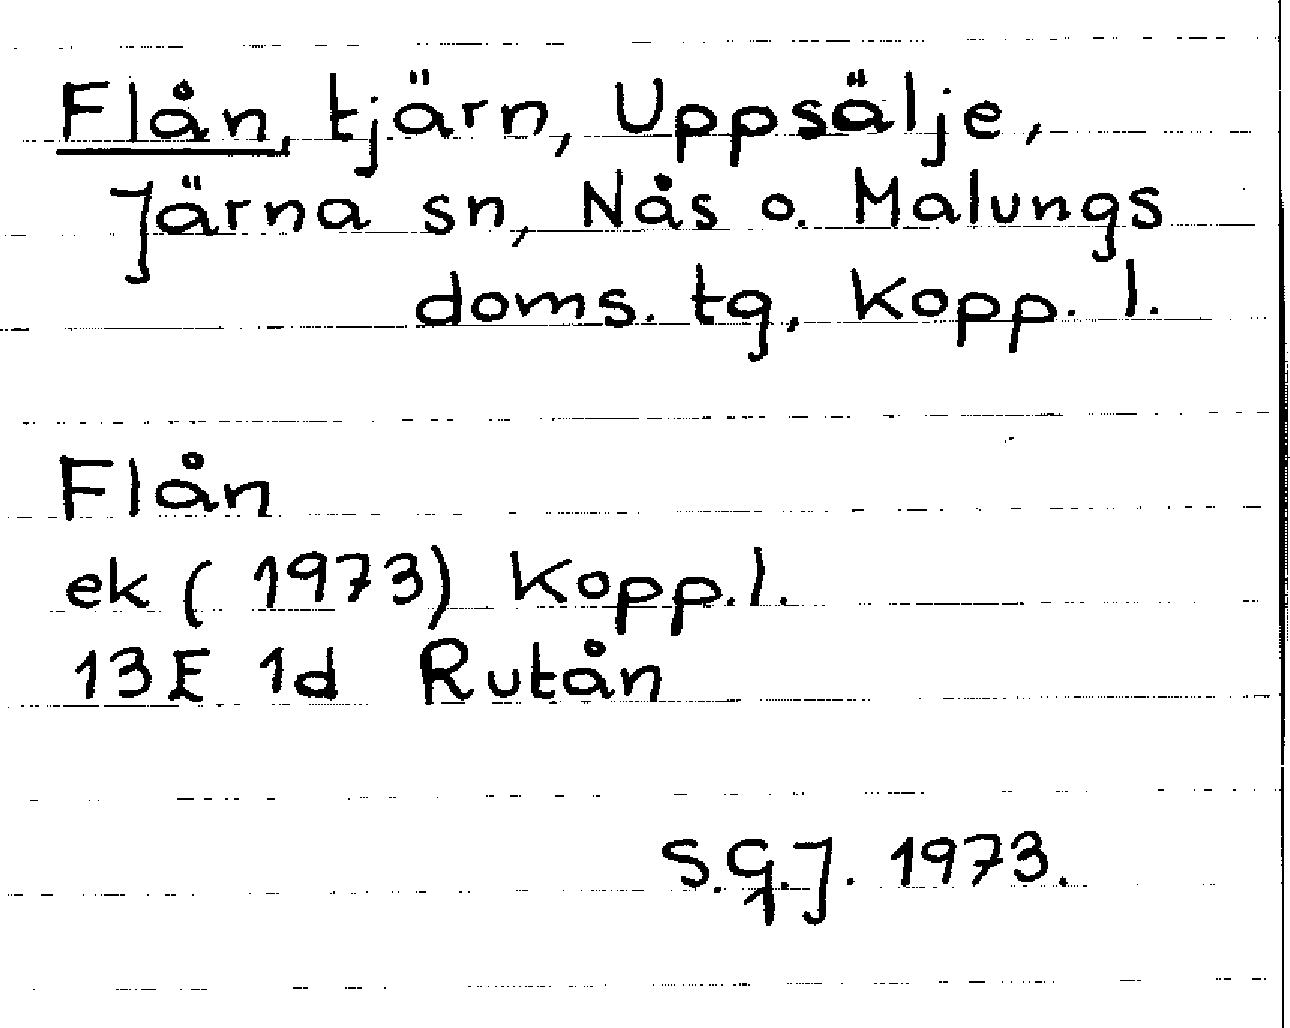 Flån, tjärn, Uppsälje,
Järna sn, Nås o. Malungs
doms. tg, Kopp. l.
Flån
ek (1973) Kopp.l.
13E 1d Rutån
S.G.J. 1973.